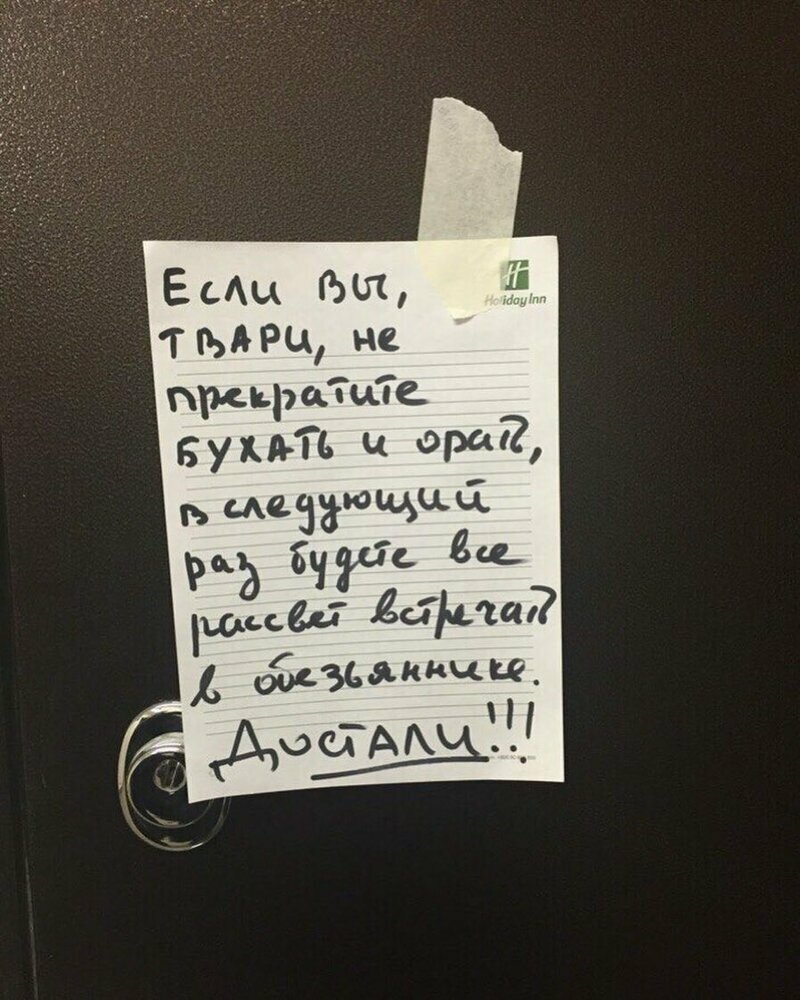 Если вы,
Holiday Inn
ТВАРИ, не
прекратите
БУХАТЬ и орать,
в следующий
раз будете все
рассвет встречать
в обезьяннике.
ДОСТАЛИ!!!